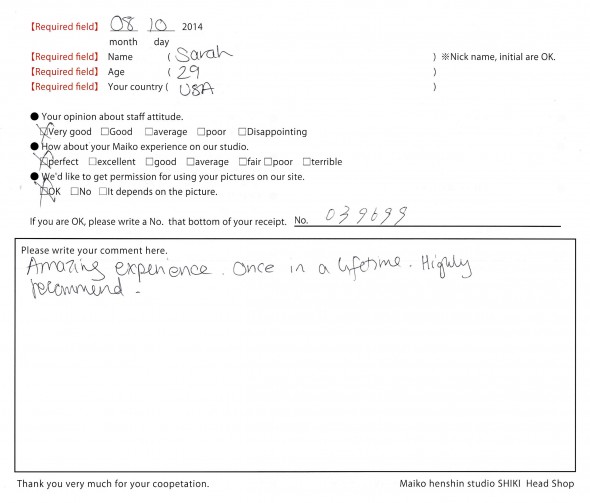 【Required field】 08 10 2014
month day
【Required field】 Name ( Sarah ) ※Nick name, initial are OK.
【Required field】 Age ( 29 )
【Required field】 Your country ( USA )
● Your opinion about staff attitude.
☒Very good □Good □average □poor □Disappointing
●How about your Maiko experience on our studio.
☒perfect □excellent □good □average □fair □poor □terrible
●We'd like to get permission for using your pictures on our site.
☒OK □No □It depends on the picture.
If you are OK, please write a No. that bottom of your receipt. No. 039699
Please write your comment here.
Amazing experience. Once in a lifetime. Highly
recommend.
Thank you very much for your coopetation. Maiko henshin studio SHIKI Head Shop